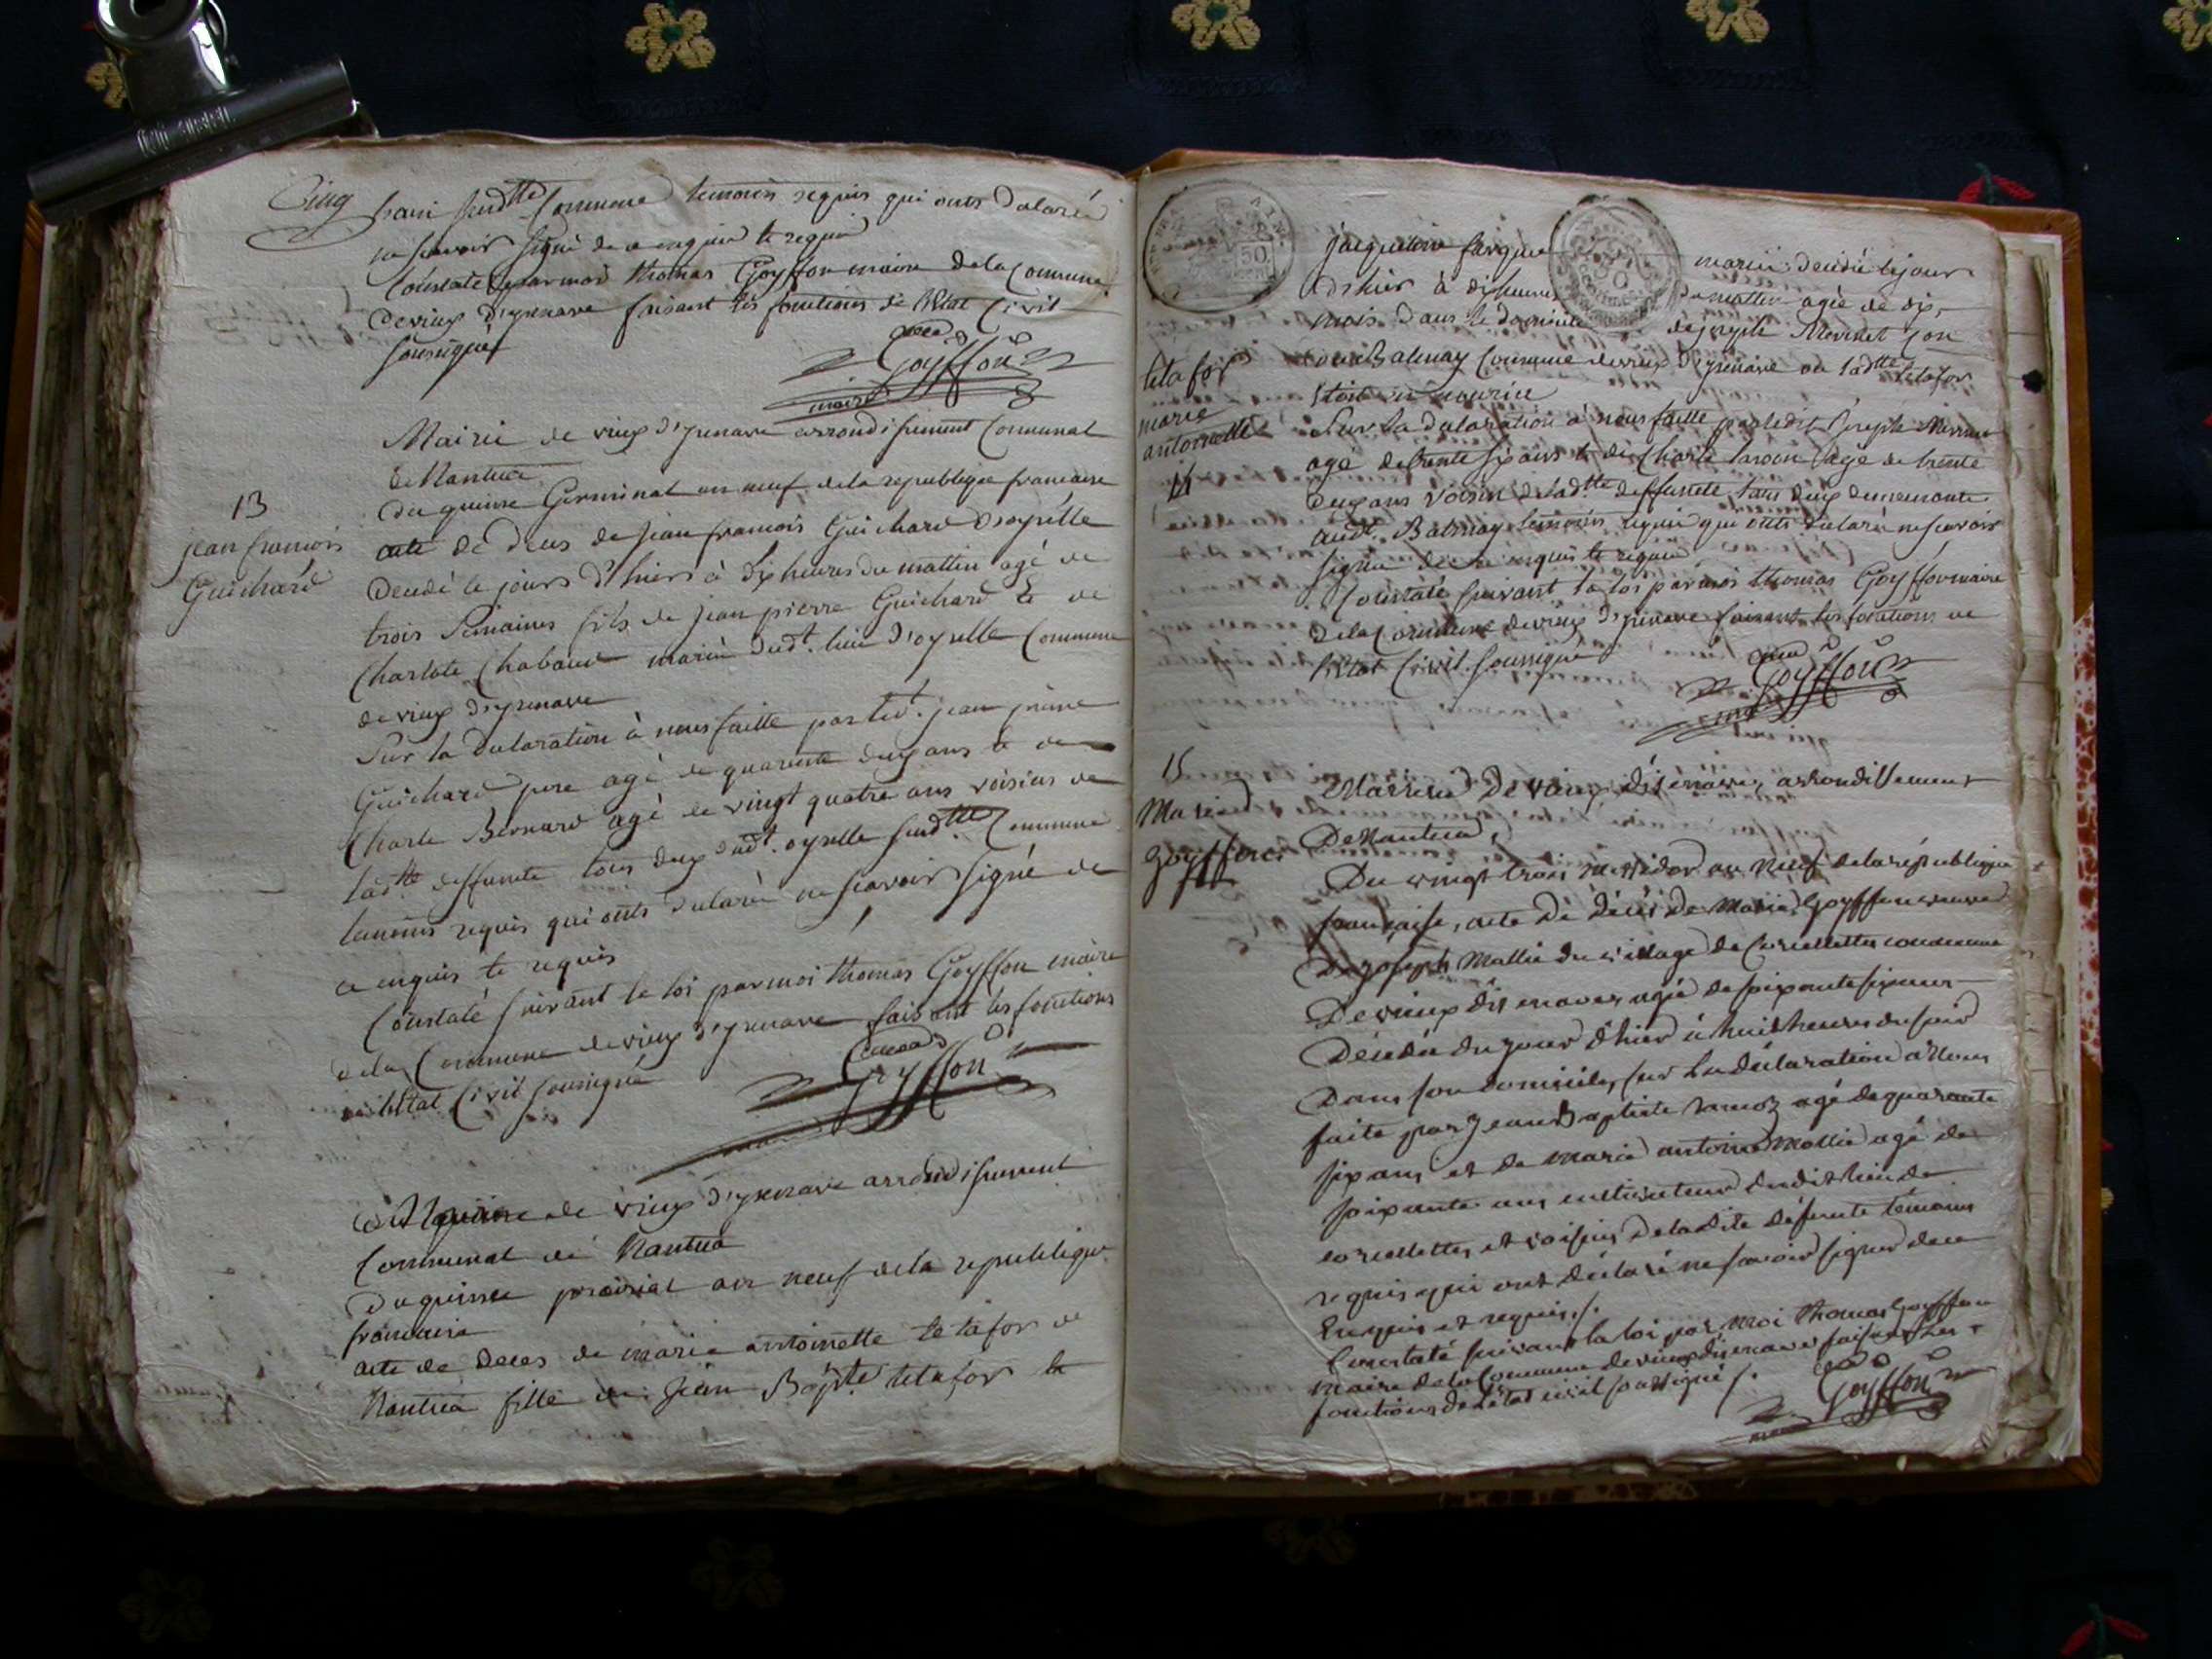 Cinq
susd.tte Commune temoins requis qui onts declaré
ne scavoir signé de ce enquis et requis
Constaté par moi thomas Goyffon maire de la Commune
de vieux d'yzenave faisant les fonctions de l'Etat Civil
soussigné
Goyffon
maire
Mairie de vieux d'yzenave arrondissement Communal
de Nantua
13
jean francois
Guichard
du quinze Germinal an neuf de la republique francaise
acte de deces de jean francois Guichard d'oyselle
decedé le jours d'hiers à dix heures du mattin agé de
trois semaines fils de jean pierre Guichard et de
Charlote Chabaud mariés dud.t lieu d'oyselle Commune
de vieux d'yzenave
Sur la declaration à nous faitte par led.t jean pierre
Guichard pere agé de quarente deux ans et de
Charle Bernard agé de vingt quatre ans voisins de
lad.tte deffunte tous deux dud.t oyselle susd.tte Commune
temoins requis qui onts declaré ne scavoir signé de
ce enquis et requis
Constaté suivant la loi par moi thomas Goyffon maire
de la Commune de vieux d'yzenave faisant les fonctions
de l'Etat Civil soussigné
Goyffon
Mairie de vieux d'yzenave arrondissement
Communal de Nantua
du quinze prairial an neuf de la republique
francaise
acte de deces de marie antoinette tetafor de
Nantua fille de jean Bap.te tetafor et
50
jacqueline mariés decedée le jour
d'hier à dix heures du mattin agée de dix
mois dans le domicile de joseph Mermet
Balmay Commune de vieux d'yzenave ou lad.tte tetafor
etoit en nourice
tetafor
marie
antoinette
14
Sur la declaration à nous faitte par ledit joseph Mermet
agé de trente six ans et de Charle agé de trente
deux ans voisin de lad.tte deffunte tous deux demeurants
aud.t Balmay temoins requis qui onts declaré ne scavoir
signé de ce enquis et requis
Constaté suivant la loi par moi thomas Goyffon maire
de la Commune de vieux d'yzenave faisant les fonctions de
l'Etat Civil soussigné
Goyffon
15
Marie
Goyffon
Mairie de vieux d'izenave, arrondissement
De Nantua,
Du vingt trois messidor an neuf de la république
française, acte de décès de Marie Goyffon veuve
de joseph Mallié du village de Corcellettes commune
De vieux d'izenave, agée de soixante six ans
Décédée du jour d'hier à huit heures du soir
Dans son domicile, sur la déclaration à Nous
faite par jean Baptiste ramoz agé de quarante
six ans et de marie antoine Mallié agé de
soixante ans cultivateurs dudit lieu de
corcellettes et voisins de ladite défunte témoins
requis qui ont déclaré ne scavoir signer de ce
Enquis et requis ./.
Constaté suivant la loi par Moi thomas Goyffon
Maire de la Commune de vieux d'izenave faisant les
fonctions de l'état civil soussigné ./.
Goyffon